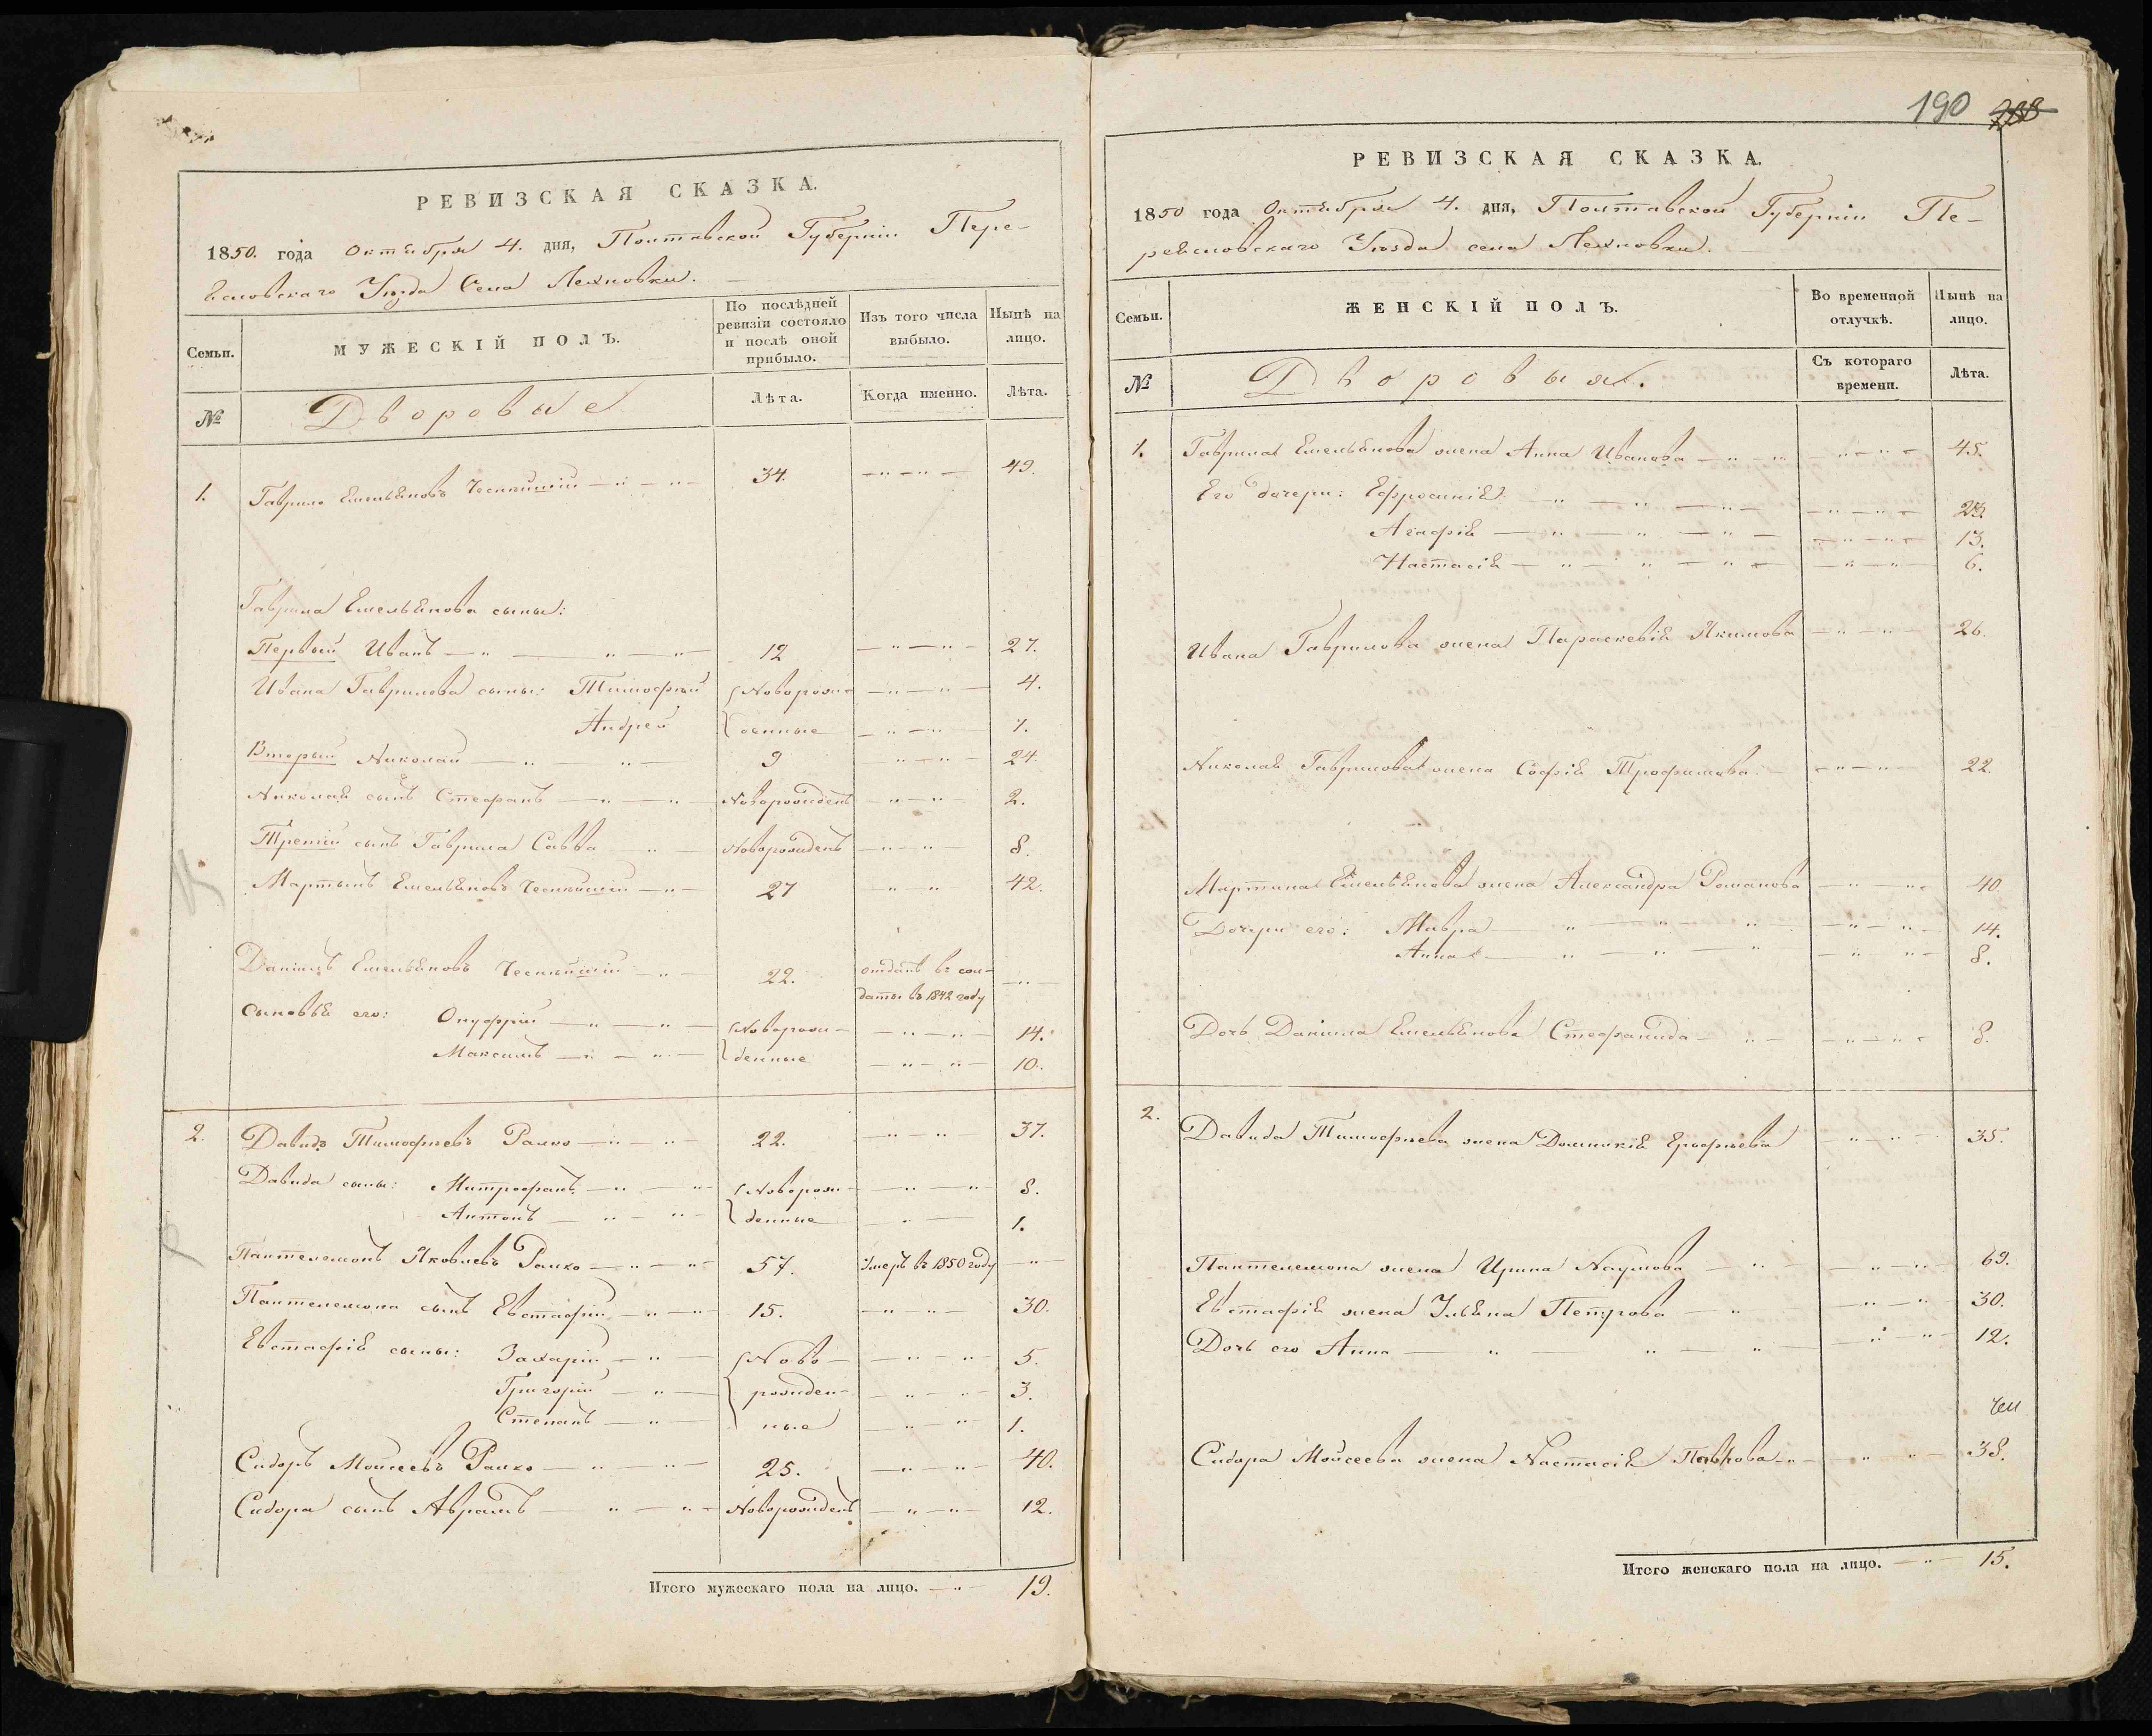 РЕВИЗСКАЯ СКАЗКА.
1850. года Октября 4. дня, Полтавской Губерніи Пере-
яславскаго Уѣзда Села Лехновки.
Семьи.
МУЖЕСКІЙ ПОЛЪ.
По послѣдней ревизіи состояло и послѣ оной прибыло.
Изъ того числа выбыло.
Нынѣ на лицо.
№
Дворовые
Лѣта.
Когда именно.
Лѣта.
1. Гаврило Емельяновъ 34. 49.
Гаврила Емельянова сыны:
Первый Иванъ 12 27.
Ивана Гаврилова сыны: Тимофѣй Новорож- 4.
Андрей денные 1.
Вторый Николай 9 24.
Николая сынъ Стефанъ Новорожденъ 2.
Третій сынъ Гаврила Савва Новорожденъ 8.
Мартынъ Емельяновъ 27 42.
Даніилъ Емельяновъ 22. отданъ въ сол-
даты въ 1842 году
Сыновья его: Онуфрій Новорож- 14.
Максимъ денные 10.
2. Давидъ Тимофѣевъ Ралко 22. 37.
Давида сыны: Митрофанъ Новорож- 8.
Антонъ денные 1.
Пантелемонъ Яковлевъ Ралко 57. Умеръ въ 1850 году
Пантелемона сынъ Евстафій 15. 30.
Евстафія сыны: Захарій Ново- 5.
Григорій рожден- 3.
Степанъ ные 1.
Сидоръ Мойсеевъ Ралко 25. 40.
Сидора сынъ Аврамъ Новорожденъ 12.
Итого мужескаго пола на лицо. 19.
190 788
РЕВИЗСКАЯ СКАЗКА.
1850 года Октября 4. дня, Полтавской Губерніи Пе-
реяславскаго Уѣзда села Лехновки.
Семьи.
ЖЕНСКІЙ ПОЛЪ.
Во временной отлучкѣ.
Нынѣ на лицо.
№
Дворовыя.
Съ котораго времени.
Лѣта.
1. Гаврила Емельянова жена Анна Иванова 45.
Его дочери: Ефросинія 23.
Агафія 13.
Настасія 6.
Ивана Гаврилова жена Параскевія Якимова 26.
Николая Гаврилова жена Софія Трофимова 22.
Мартина Емельянова жена Александра Романова 40.
Дочери его: Мавра 14.
Анна 8.
Дочь Даніила Емельянова Стефанида 8.
2. Давида Тимофѣева жена Домникія Ерофѣева 35.
Пантелемона жена Ирина Наумова 69.
Евстафія жена Ульяна Петрова 30.
Дочь его Анна 12.
Сидора Мойсеева жена Настасія Павлова 38.
Итого женскаго пола на лицо. 15.